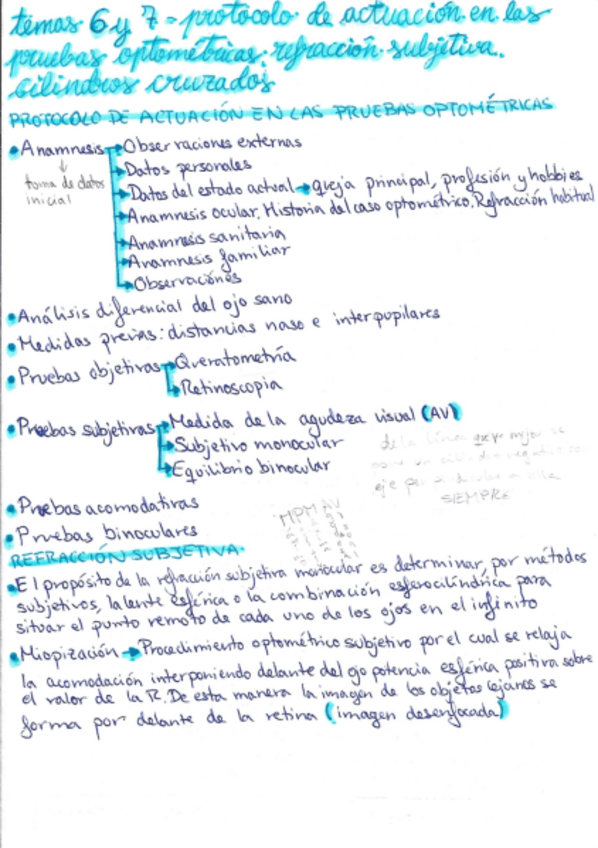 temas 6 y 7 = protocolo de actuación en las
pruebas optométricas. refracción subjetiva.
cilindros cruzados
PROTOCOLO DE ACTUACIÓN EN LAS PRUEBAS OPTOMÉTRICAS
• Anamnesis → Observaciones externas
toma de datos
inicial
→ Datos personales
→ Datos del estado actual → queja principal, profesión y hobbies
→ Anamnesis ocular. Historia del caso optométrico. Refracción habitual
→ Anamnesis sanitaria
→ Anamnesis familiar
→ Observaciones
• Análisis diferencial del ojo sano
• Medidas previas: distancias naso e interpupilares
• Pruebas objetivas → Queratometría
→ Retinoscopia
• Pruebas subjetivas → Medida de la agudeza visual (AV)
→ Subjetivo monocular
→ Equilibrio binocular
de la línea que mejor se
eje
SIEMPRE
• Pruebas acomodativas
• Pruebas binoculares
MPMAV
REFRACCIÓN SUBJETIVA.
• El propósito de la refracción subjetiva monocular es determinar, por métodos
subjetivos, la lente esférica o la combinación esferocilíndrica para
situar el punto remoto de cada uno de los ojos en el infinito
• Miopización → Procedimiento optométrico subjetivo por el cual se relaja
la acomodación interponiendo delante del ojo potencia esférica positiva sobre
el valor de la R. De esta manera la imagen de los objetos lejanos se
forma por delante de la retina (imagen desenfocada)